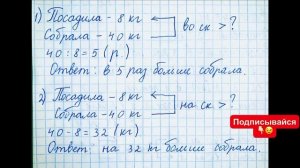 1) Посадила - 8 кг
Собрала - 40 кг
во ск > ?
40 : 8 = 5 (р.)
Ответ: в 5 раз больше собрала.
2) Посадила - 8 кг
Собрала - 40 кг
на ск > ?
40 - 8 = 32 (кг)
Ответ: на 32 кг больше собрала.
Подписывайся